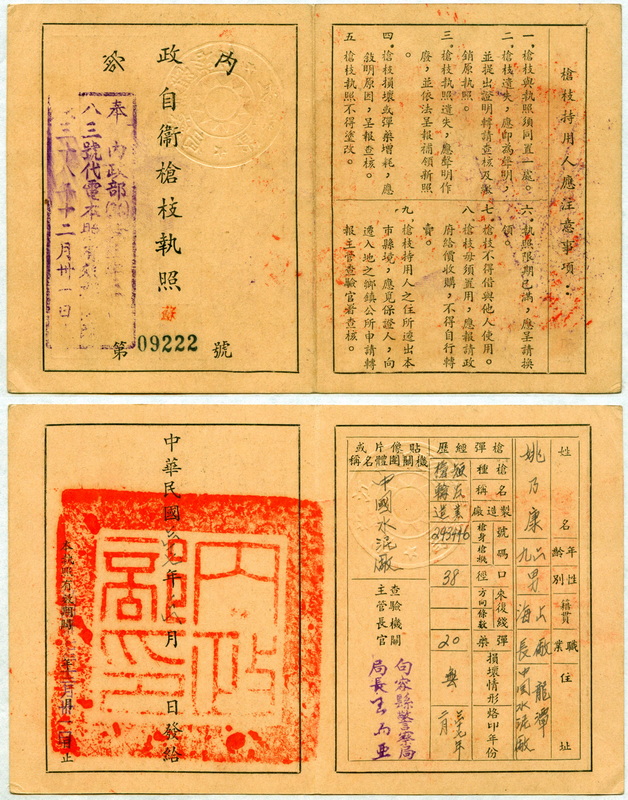 槍枝持用人應注意事項：
一、槍枝與執照須同置一處。
二、槍枝遺失，應即為聲明，
並提出證明轉請查核及繳
銷原執照。
三、槍枝執照遺失，應聲明作
廢，並依法呈報補領新照
。
四、槍枝損壞或彈藥增耗，應
敘明原因，呈報查核。
五、槍枝執照不得塗改。
六、執照限期已滿，應呈請換
領。
七、槍枝不得借與他人使用。
八、槍枝毋須置用，應報請政
府給價收購，不得自行轉
賣。
九、槍枝持用人之住所遷出本
市縣境，應覓保證人，向
遷入地之鄉鎮公所申請轉
報主管查驗官署查核。
內政部
自衛槍枝執照
第09222號
奉 內政部
八三號代電本照有效
十二月卅一日
姓名 年齡 性別 籍貫 職業 住址
姚乃康 六九 男 上海 廠長 龍潭中國水泥廠
槍彈經歷
槍種 名稱 製造廠 槍身槍機號碼 口徑 來復綫方向條數 彈藥 損壞情形 烙印年份
293446 38 20 無 三十七年 二月
貼像片或機關團體名稱
中國水泥廠
查驗機關主管長官
句容縣警察局
局長
中華民國 年 月 日發給
本執照有效期間 年 月卅一日止
內政部印